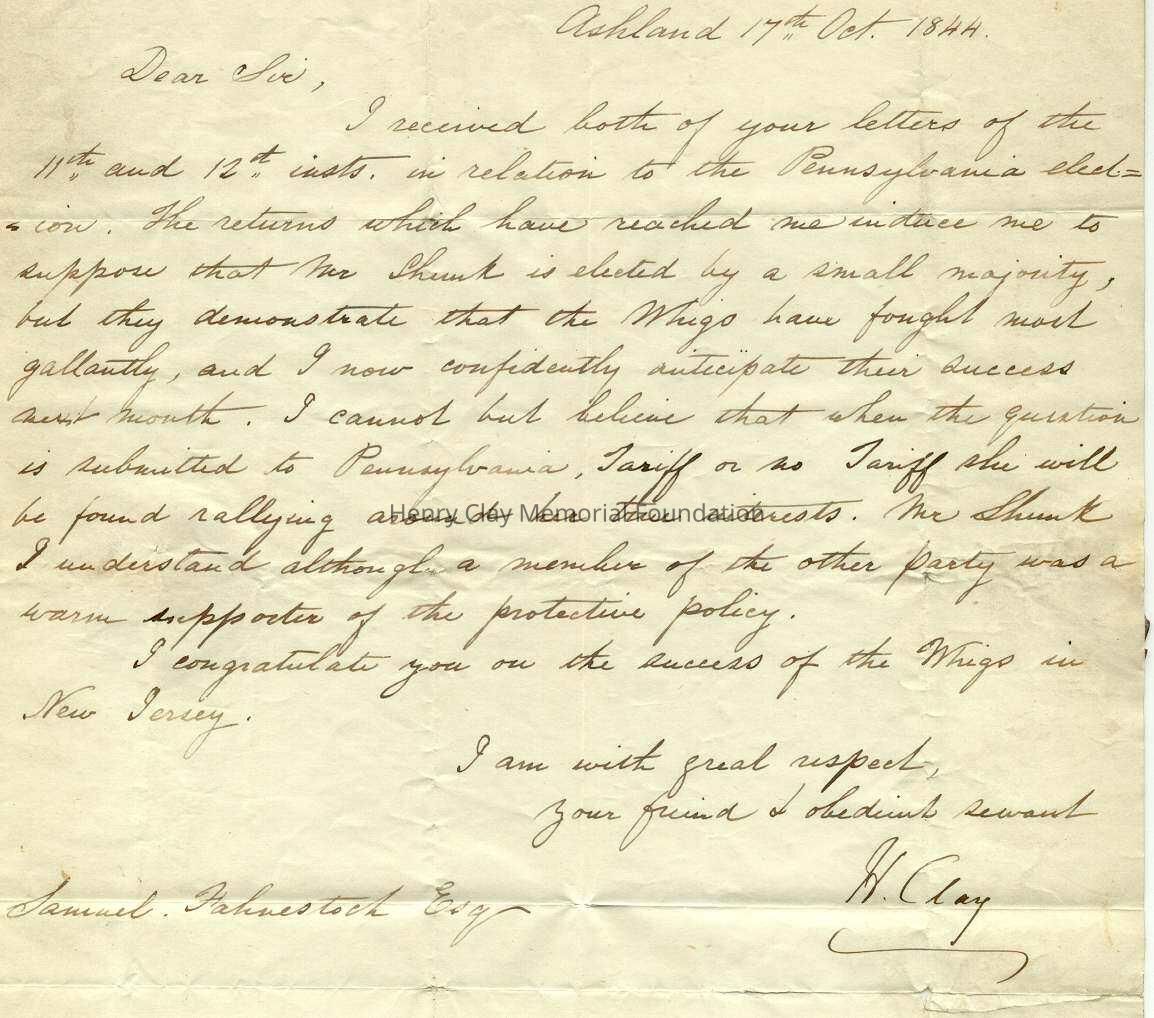 Ashland 17th Oct. 1844.
Dear Sir,
I received both of your letters of the
11th and 12th insts. in relation to the Pennsylvania elect=
=ion. The returns which have reached me induce me to
suppose that Mr Shunk is elected by a small majority,
but they demonstrate that the Whigs have fought most
gallantly, and I now confidently anticipate their success
next month. I cannot but believe that when the question
is submitted to Pennsylvania, Tariff or no Tariff she will
be found rallying around her true interests. Mr Shunk
Henry Clay Memorial Foundation
I understand although a member of the other party was a
warm supporter of the protective policy.
I congratulate you on the success of the Whigs in
New Jersey.
I am with great respect,
Your friend & obedient servant
H. Clay
Samuel. Fahnestock Esq